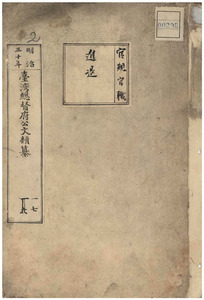 2
官規官職
進退
明治
三十年
臺灣總督府公文類纂
一七